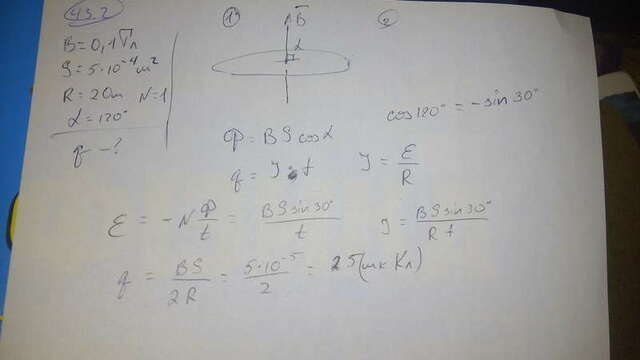 43.2
B = 0,1 Тл
S = 5·10⁻⁴ м²
R = 2 Om N = 1
α = 120°
q - ?
1)
B
α
2
cos 120° = - sin 30°
Φ = BS cos α
q = I · t
I = ε/R
ε = - N Φ/t = BS sin 30°/t
I = BS sin 30°/R t
q = BS/2R = 5·10⁻⁵/2 = 25 (мк Кл)